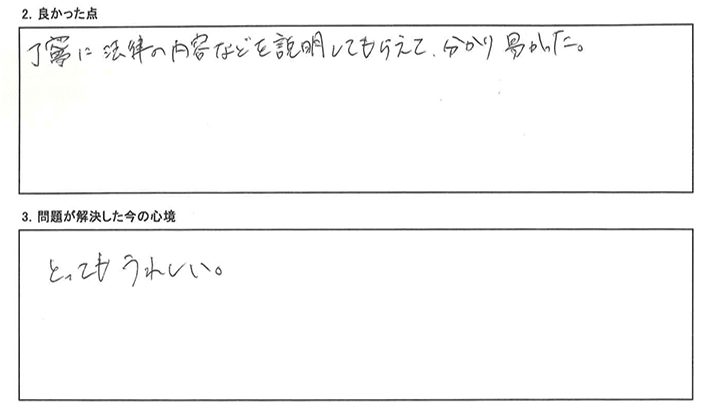 2. 良かった点
丁寧に法律の内容などを説明してもらえて、分かり易かった。
3. 問題が解決した今の心境
とってもうれしい。